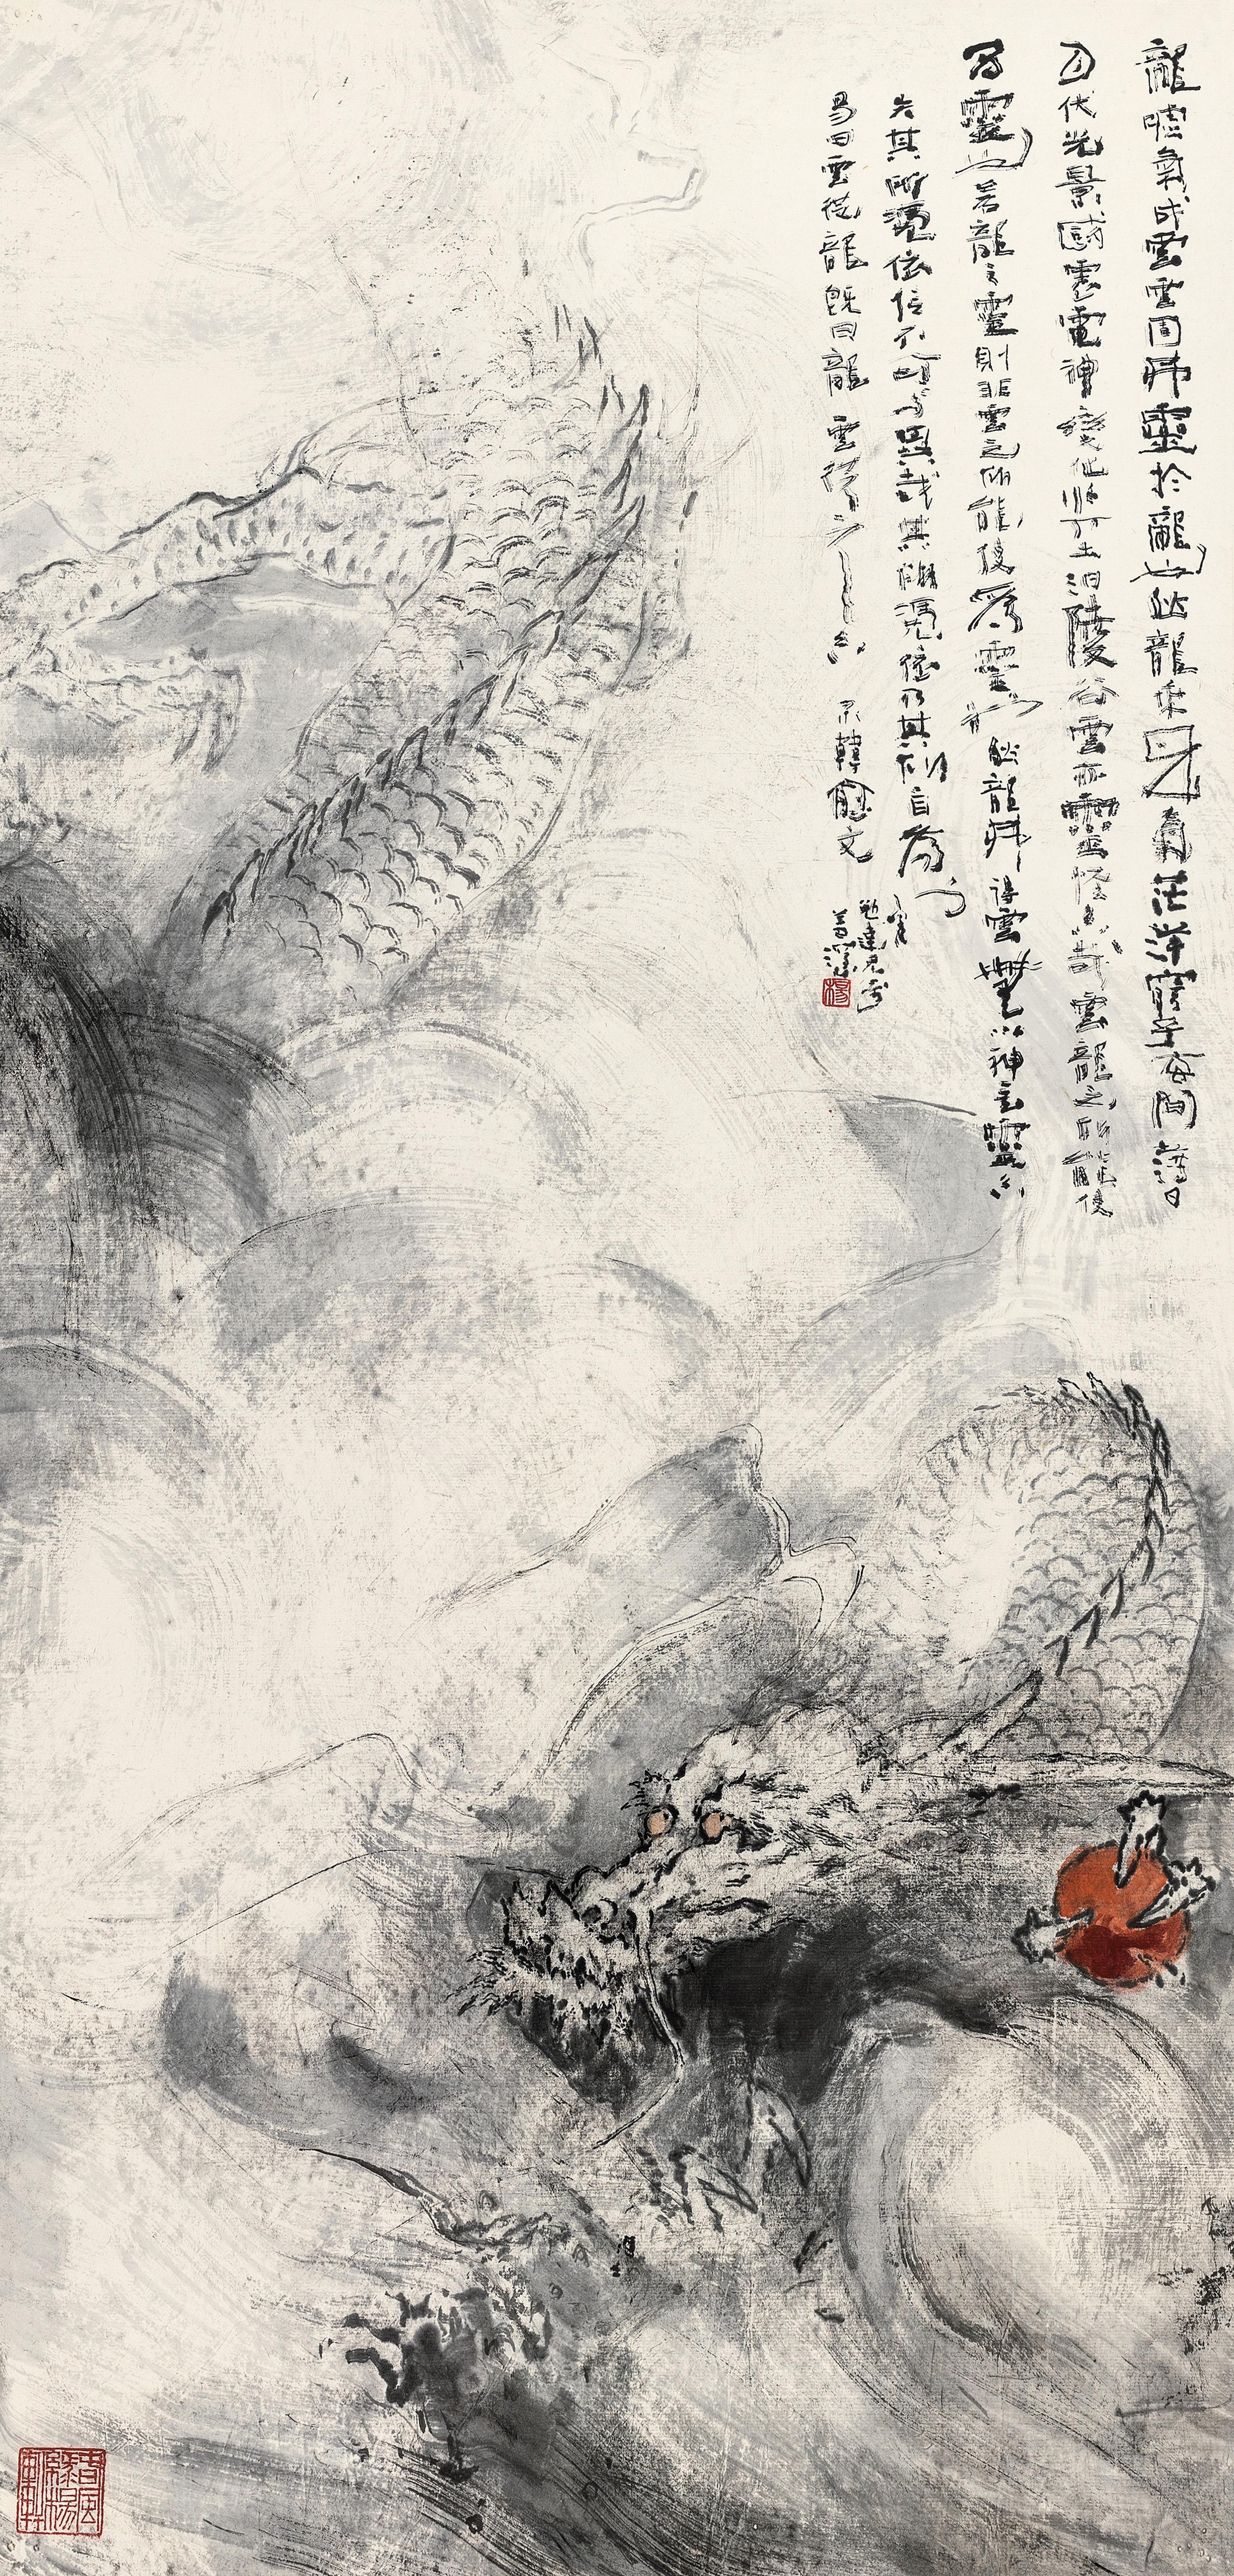 龍噓氣成雲雲固弗靈於龍也然龍乘是氣茫洋窮乎玄間薄日
月伏光景感震電神變化水下土汩陵谷雲亦靈怪矣哉雲龍之所能使
為靈也若龍之靈則非雲之所能使為靈也然龍弗得雲無以神其靈矣
失其所憑依信不可與異哉其所憑依乃其所自為也
易曰雲從龍既曰龍雲從之矣 录韓愈文
達兄
善深
楊
春風
綠楊